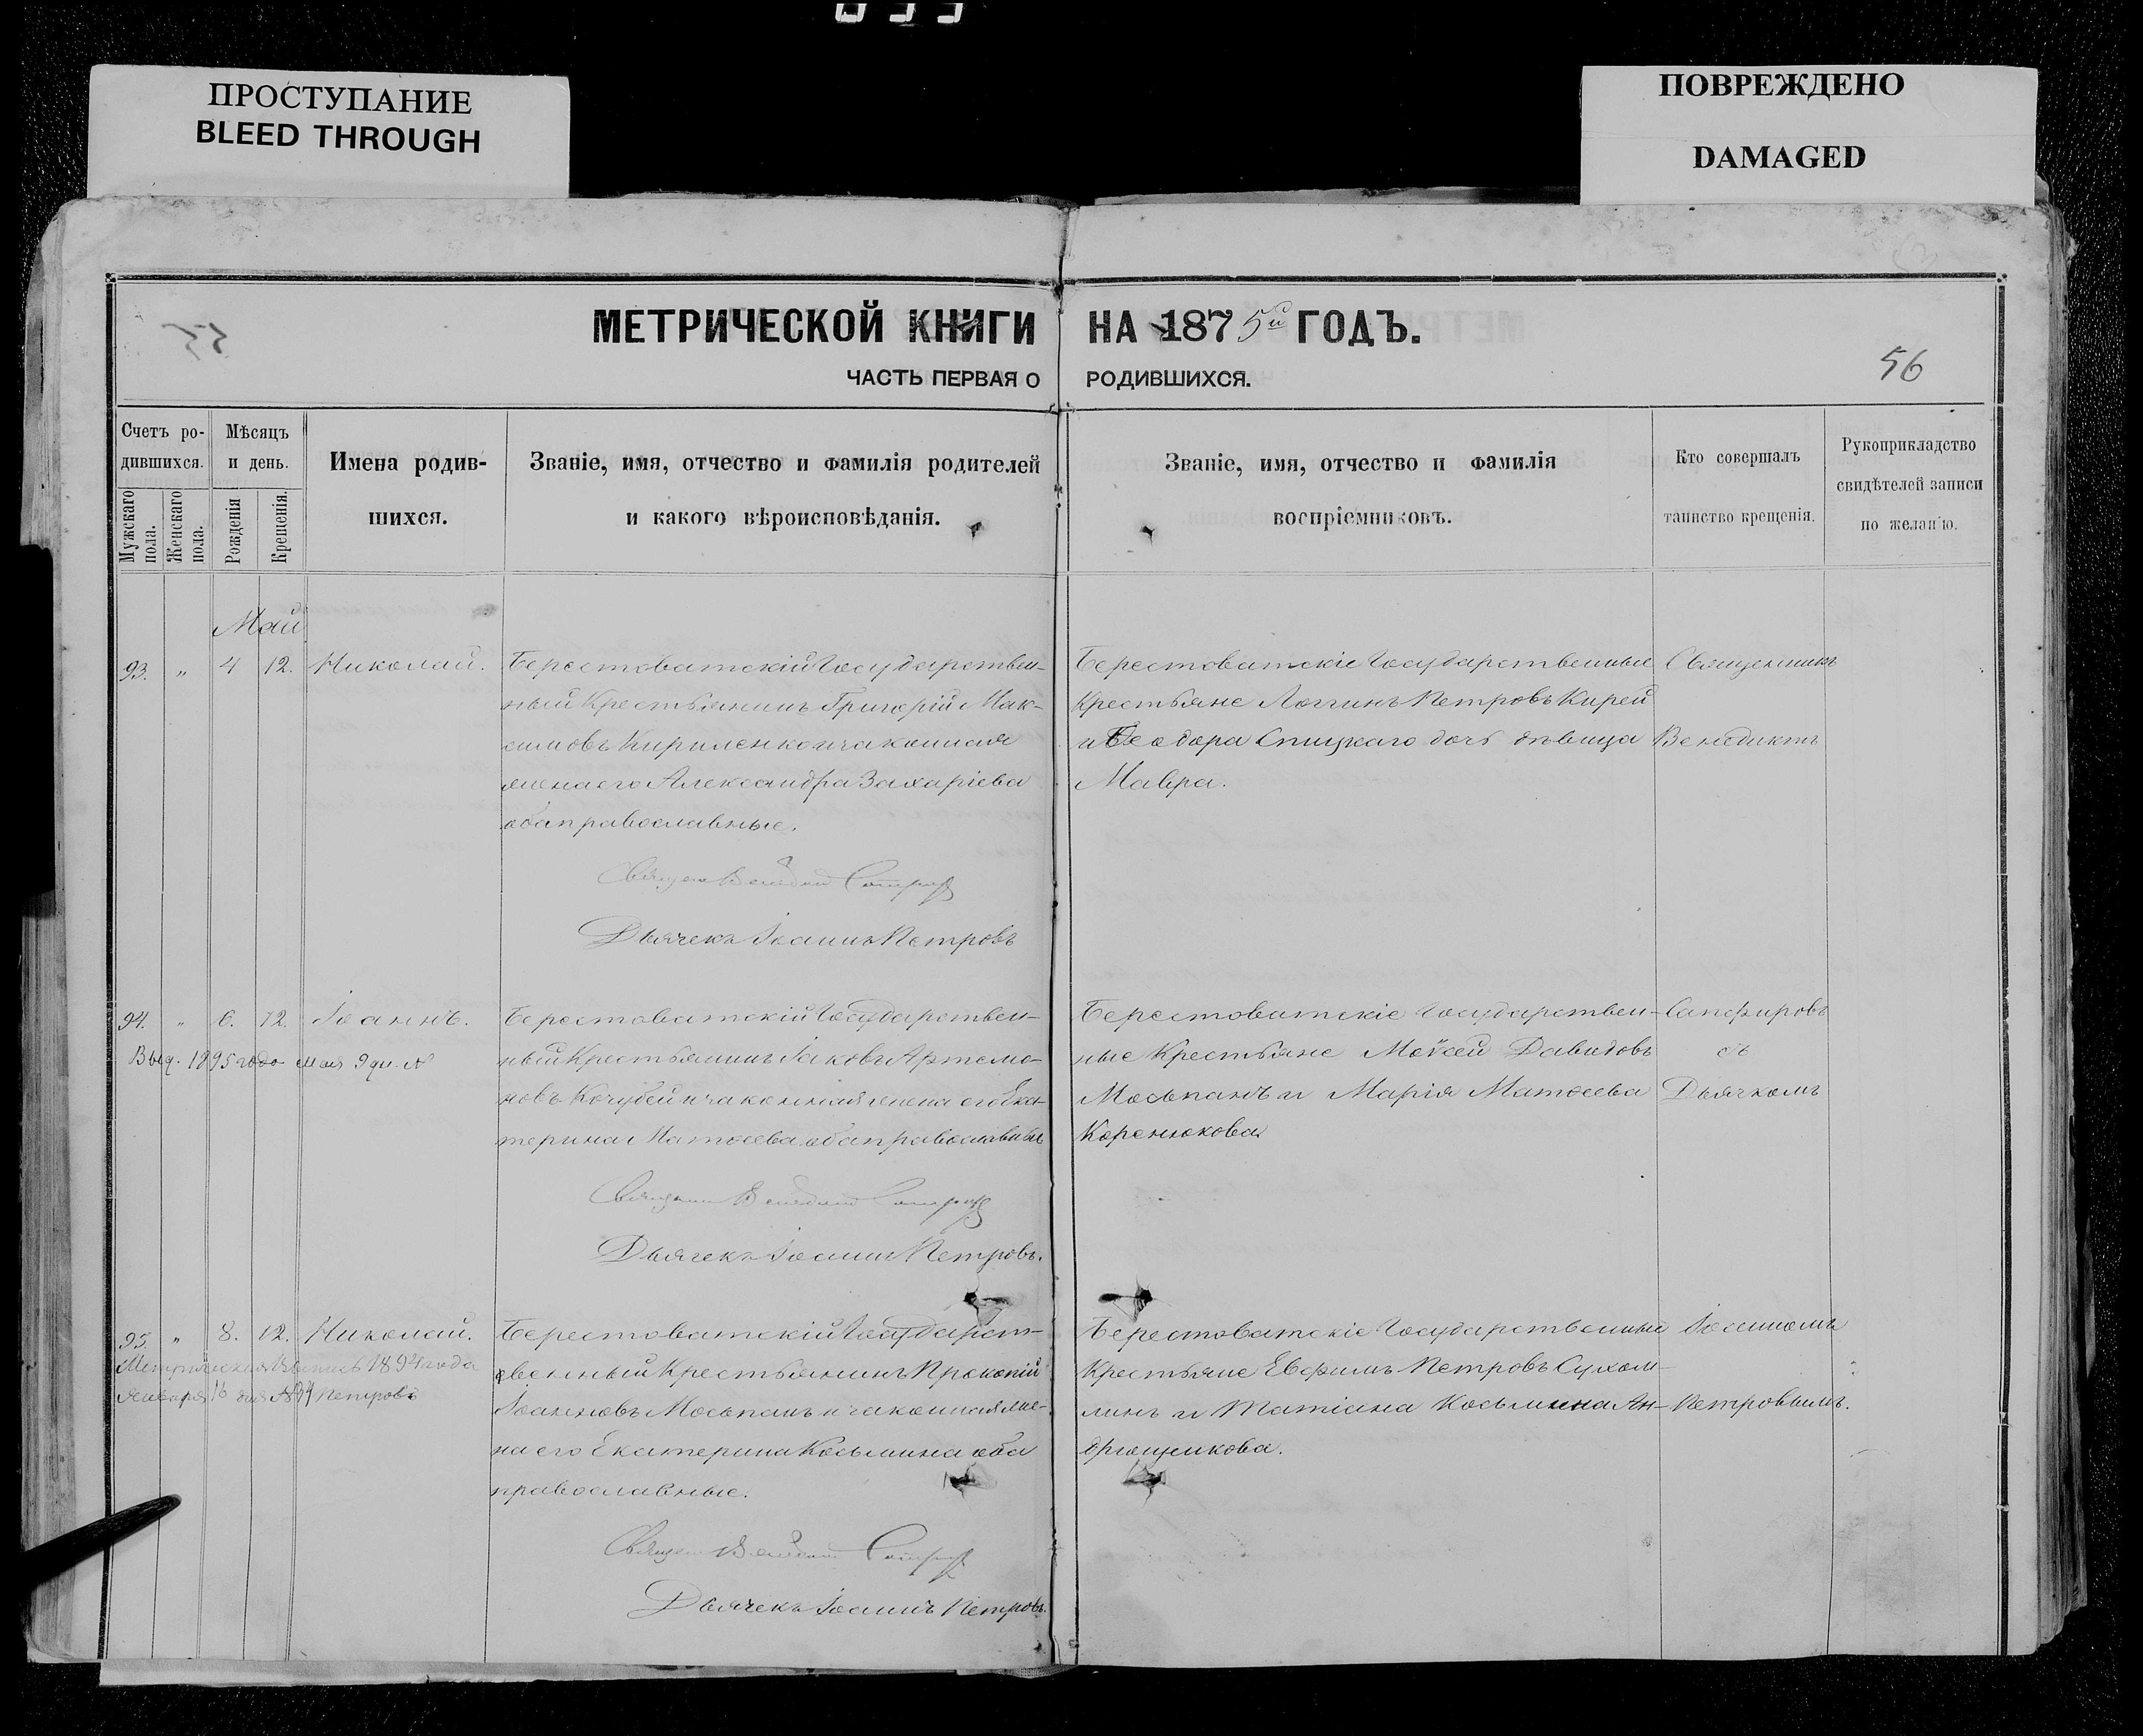 ПРОСТУПАНИЕ
BLEED THROUGH
ПОВРЕЖДЕНО
DAMAGED
МЕТРИЧЕСКОЙ КНИГИ НА 1875й ГОДЪ.
ЧАСТЬ ПЕРВАЯ О РОДИВШИХСЯ.
55
56
Счетъ ро-
дившихся.
Мужскаго пола.
Женскаго пола.
Мѣсяцъ
и день.
Рожденія
Крещенія.
Имена родив-
шихся.
Званіе, имя, отчество и фамилія родителей
и какого вѣроисповѣданія.
Званіе, имя, отчество и фамилія
воспріемниковъ.
Кто совершалъ
таинство крещенія.
Рукоприкладство
свидѣтелей записи
по желанію.
Май
93. " 4 12. Николай.
Берестоватскій Государствен-
ный Крестьянинъ Григорій Мак-
симовъ Кириленко и законная
жена его Александра Захаріева
оба православные.
Дьячекъ Іоаннъ Петровъ
Берестоватскіе Государственные
Крестьяне Логгинъ Петровъ Кирей
и Ѳеодора Спицкаго дочь дѣвица
Мавра.
Священникъ
Венедиктъ
94. " 6. 12. Іоаннъ.
Выд. 1895 года мая 9 дн. №
Берестоватскій Государствен-
ный Крестьянинъ Іаковъ Артемо-
новъ Кочубей и законная жена его Ека-
терина Матѳеева оба православные
Дьячекъ Іоаннъ Петровъ.
Берестоватскіе Государствен-
ные Крестьяне Моѵсей Давидовъ
Мосьпанъ и Марія Матѳеева
Коренюкова
Сапфировъ
съ
Дьячкомъ
95. " 8. 12. Николай.
Метрическая Выпись 1894 года
Января 16 дня Петровъ
Берестоватскій Государст-
венный Крестьянинъ Прокопій
Іоанновъ Мосьпанъ и законная же-
на его Екатерина Косьмина оба
православные.
Дьячекъ Іоаннъ Петровъ.
Берестоватскіе Государственные
Крестьяне Евфимъ Петровъ Сухом-
линъ и Татіана Косьмина Ан-
дрющенкова.
Іоанномъ
Петровымъ.